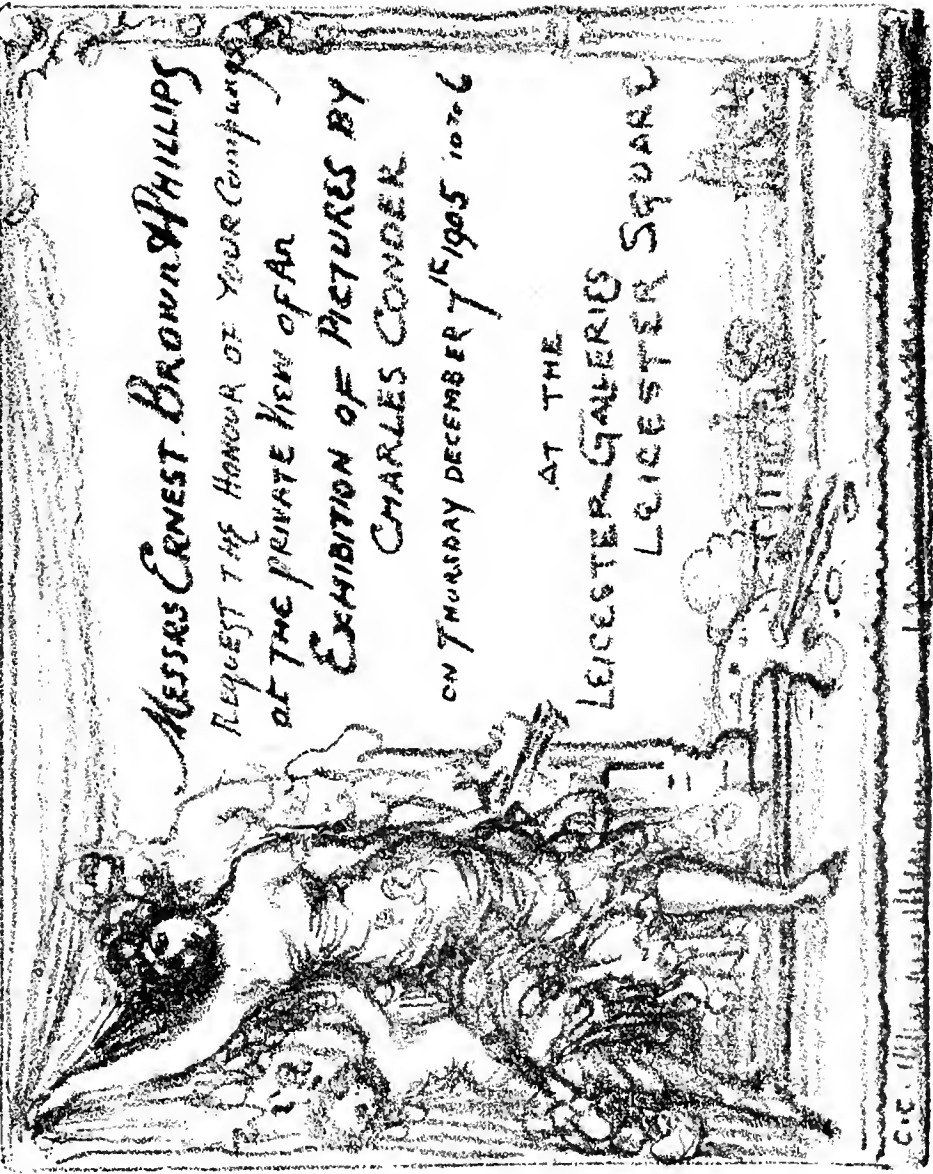 MESSRS ERNEST. BROWN & PHILLIPS
REQUEST THE HONOUR OF YOUR Company
AT THE PRIVATE VIEW OF AN
EXHIBITION OF PICTURES BY
CHARLES CONDER
ON THURSDAY DECEMBER 7TH 1905 10 to 6
AT THE
LEICESTER-GALERIES
LEICESTER SQUARE
C.C.